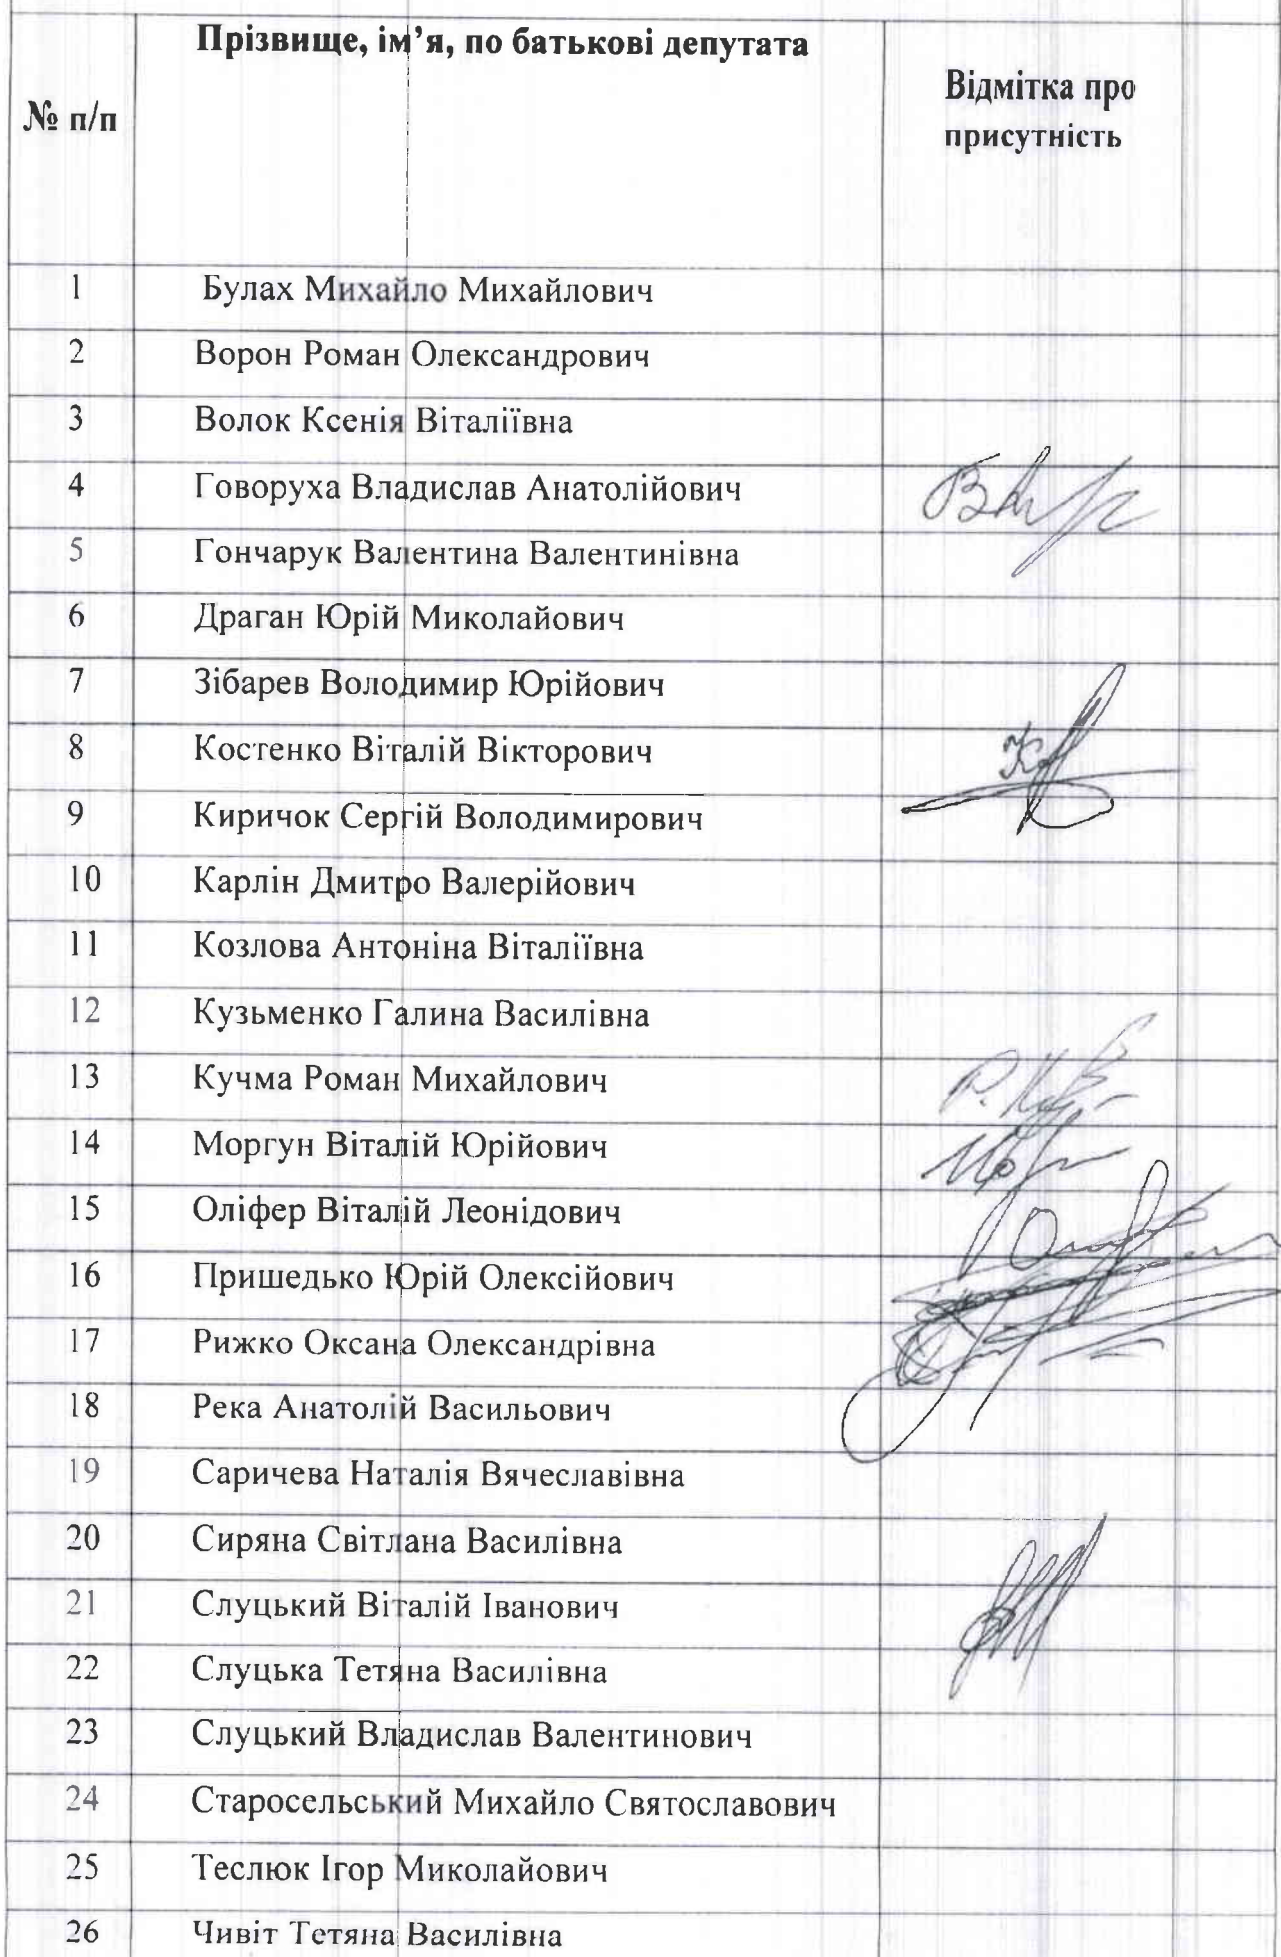 № п/п
Прізвище, ім’я, по батькові депутата
Відмітка про
присутність
1 Булах Михайло Михайлович
2 Ворон Роман Олександрович
3 Волок Ксенія Віталіївна
4 Говоруха Владислав Анатолійович
5 Гончарук Валентина Валентинівна
6 Драган Юрій Миколайович
7 Зібарев Володимир Юрійович
8 Костенко Віталій Вікторович
9 Киричок Сергій Володимирович
10 Карлін Дмитро Валерійович
11 Козлова Антоніна Віталіївна
12 Кузьменко Галина Василівна
13 Кучма Роман Михайлович
14 Моргун Віталій Юрійович
15 Оліфер Віталій Леонідович
16 Пришедько Юрій Олексійович
17 Рижко Оксана Олександрівна
18 Река Анатолій Васильович
19 Саричева Наталія Вячеславівна
20 Сиряна Світлана Василівна
21 Слуцький Віталій Іванович
22 Слуцька Тетяна Василівна
23 Слуцький Владислав Валентинович
24 Старосельський Михайло Святославович
25 Теслюк Ігор Миколайович
26 Чивіт Тетяна Василівна